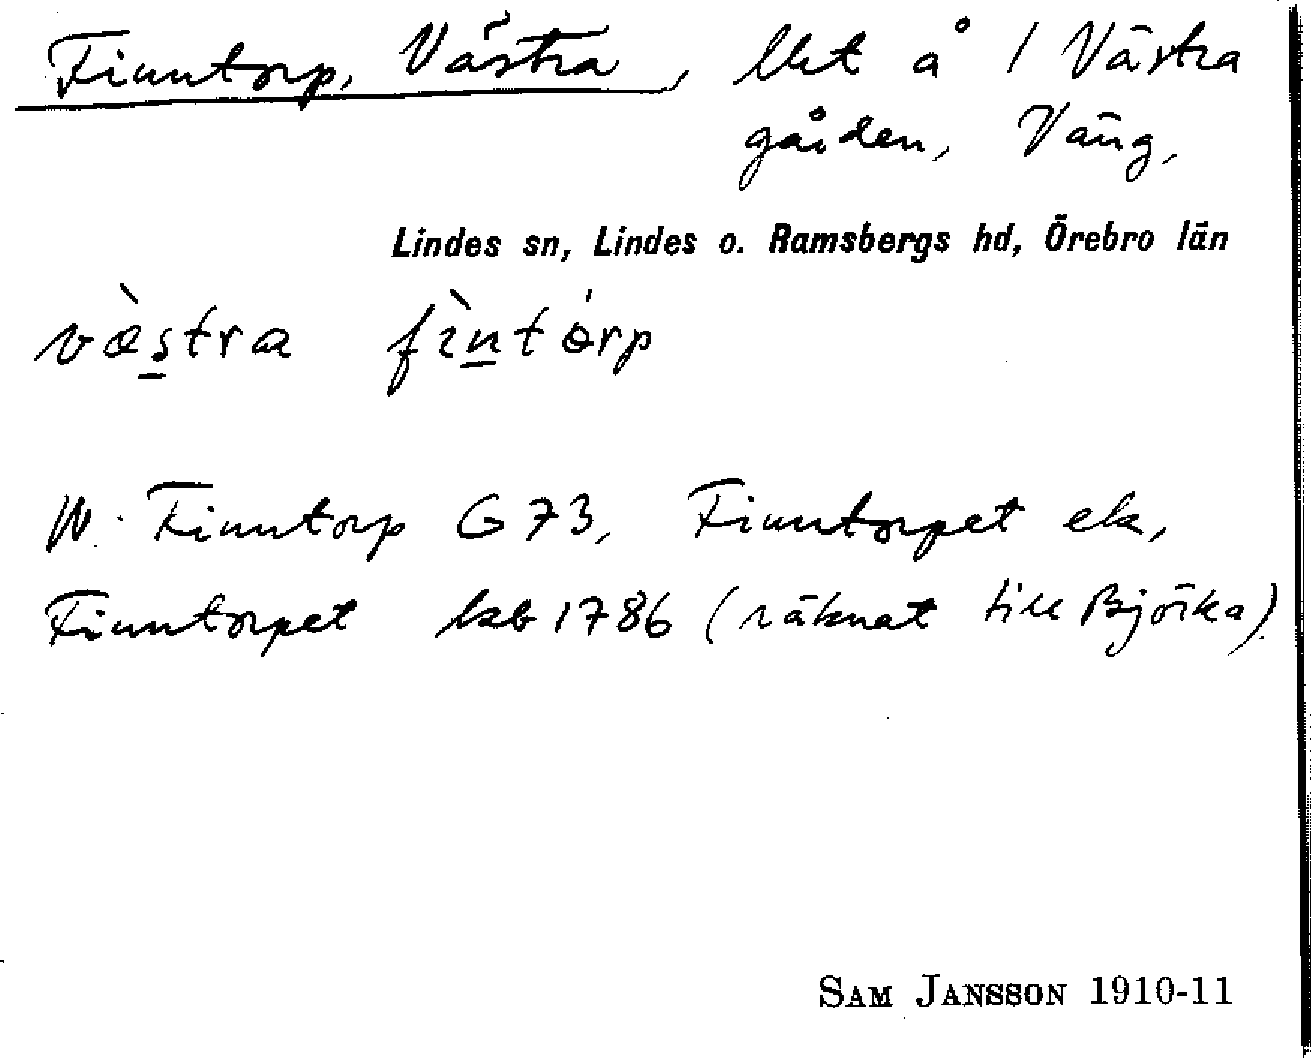 Finntorp, Västra, lht å 1 Västra
gården, Väng,
Lindes sn, Lindes o. Ramsbergs hd, Örebro län
væ̀stra fìntórp
W. Finntorp G 73, Finntorpet ek,
Finntorpet kb 1786 (räknat till Björka).
SAM JANSSON 1910-11